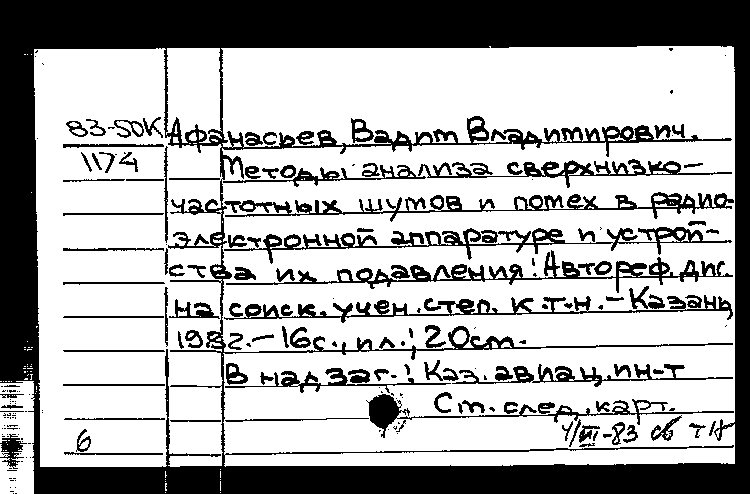 83-50К Афанасьев, Вадим Владимирович.
1174 Методы анализа сверхнизко-
частотных шумов и помех в радио-
электронной аппаратуре и устрой-
ства их подавления: Автореф. дис.
на соиск. учен. степ. к.т.н. - Казань,
1982. - 16с., ил.; 20см.
В надзаг.: Каз. авиац. ин-т
См. след. карт.
6 4/III-83 св ТН